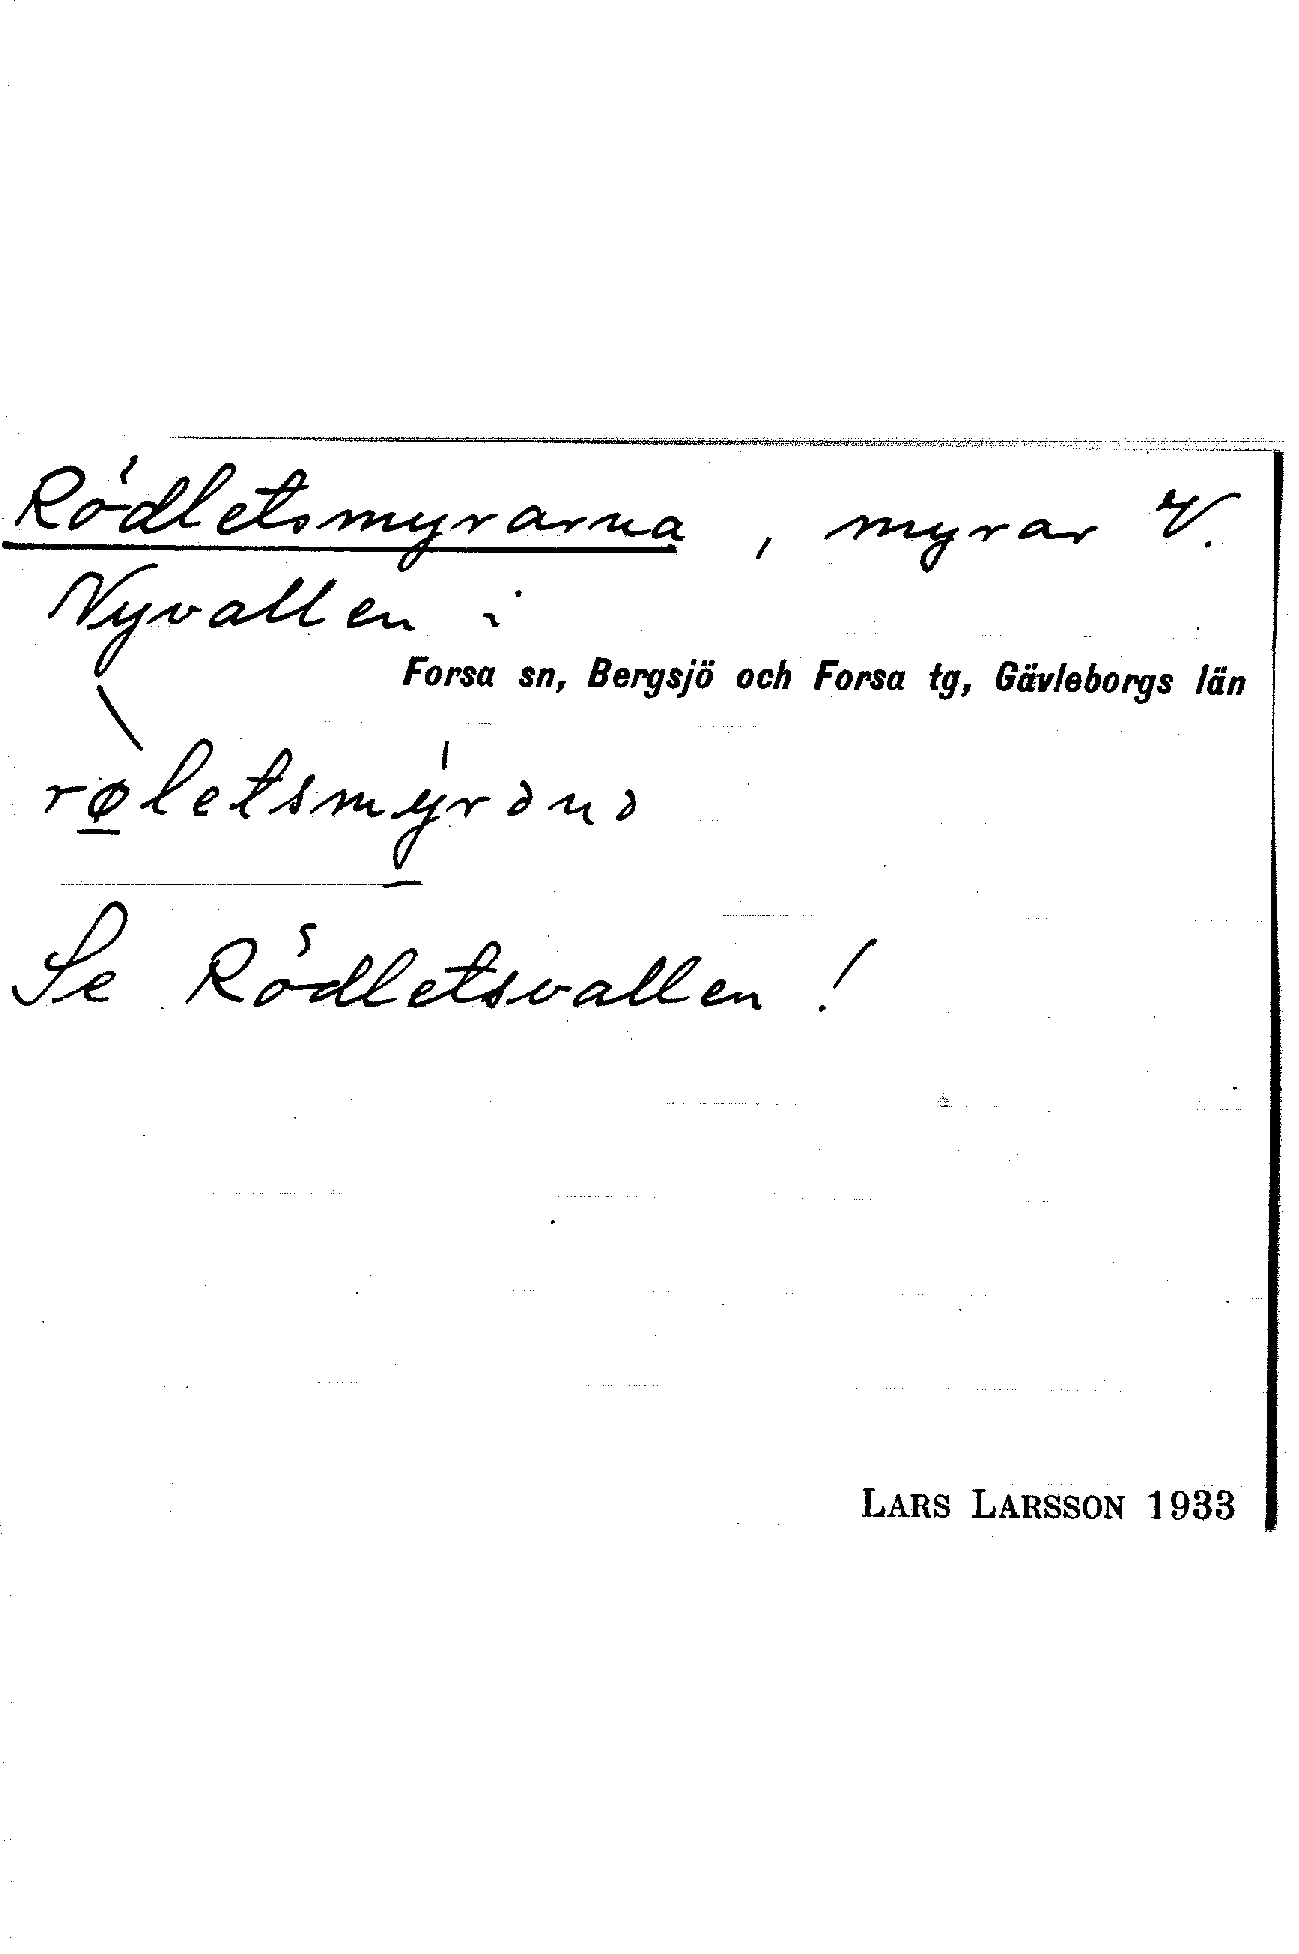 Rödletsmyrarna, myrar V.
Nyvallen i
Forsa sn, Bergsjö och Forsa tg, Gävleborgs län
rø̲̀letsmý̲rənə
Se Rödletsvallen!
LARS LARSSON 1933